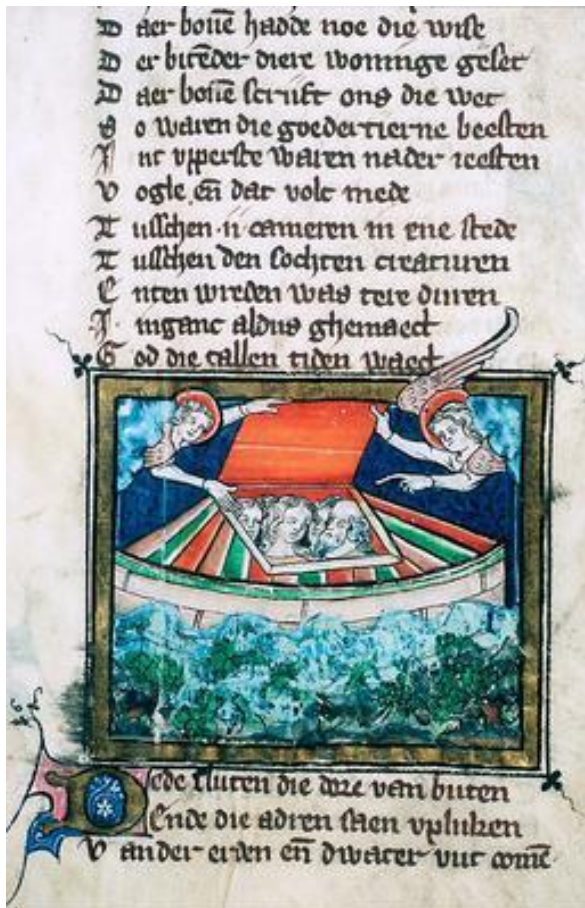 D aer bouē hadde noe die wise
D er bitēder diere woninge geset
D aer bouē scrijft ons die wet
S o waren die goedertierne beesten
I nt vpperste waren nader ieesten
V ogle eñ dat volc mede
T usschen .ii. cameren in ene stede
T usschen den sochten creaturen
E nten wreden was tere duren
I nganc aldus ghemaect
G od die tallen tiden waect
Dede sluten die dore van buten
Ende die adren saen vpluken
V ander erden eñ dwater vut comē